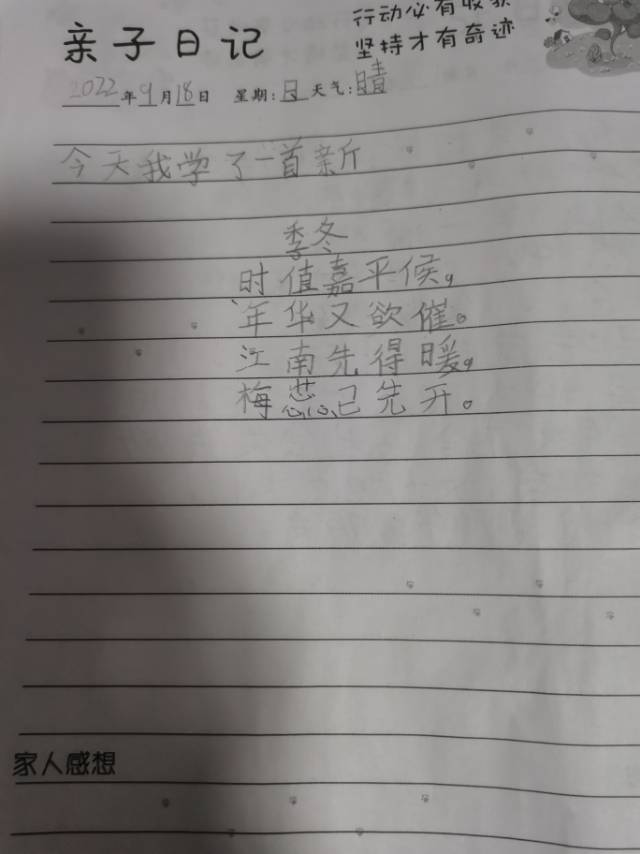 行动必有收获
坚持才有奇迹
亲子日记
2022年9月18日 星期:日 天气:晴
今天我学了一首新
季冬
时值嘉平候,
年华又欲催。
江南先得暖,
梅蕊已先开。
家人感想